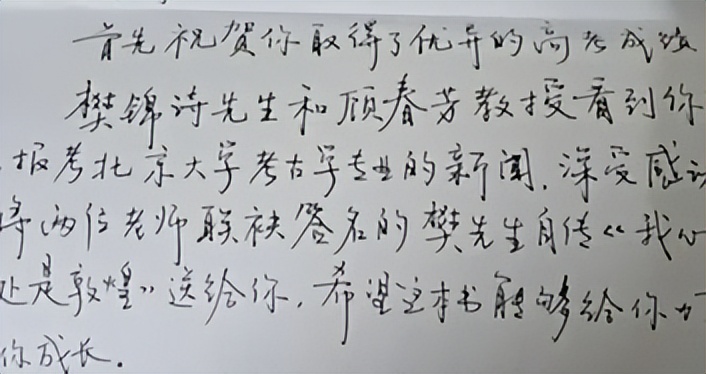 首先祝贺你取得了优异的高考成绩
樊锦诗先生和顾春芳教授看到你
报考北京大学考古学专业的新闻,深受感
将两位老师联袂签名的樊先生自传《我心
处是敦煌》送给你,希望这本书能够给你力
你成长.